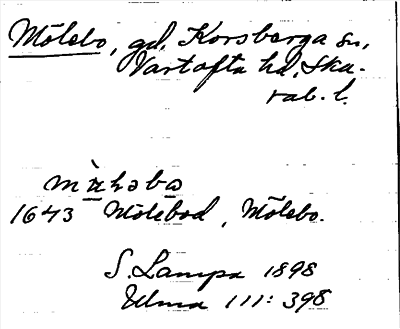 Mölebo, gd, Korsberga sn,
Vartofta hd, Ska-
rab. l.
1643 Mölebod, Mölebo.
S. Lampa 1898
Ulma 111: 398